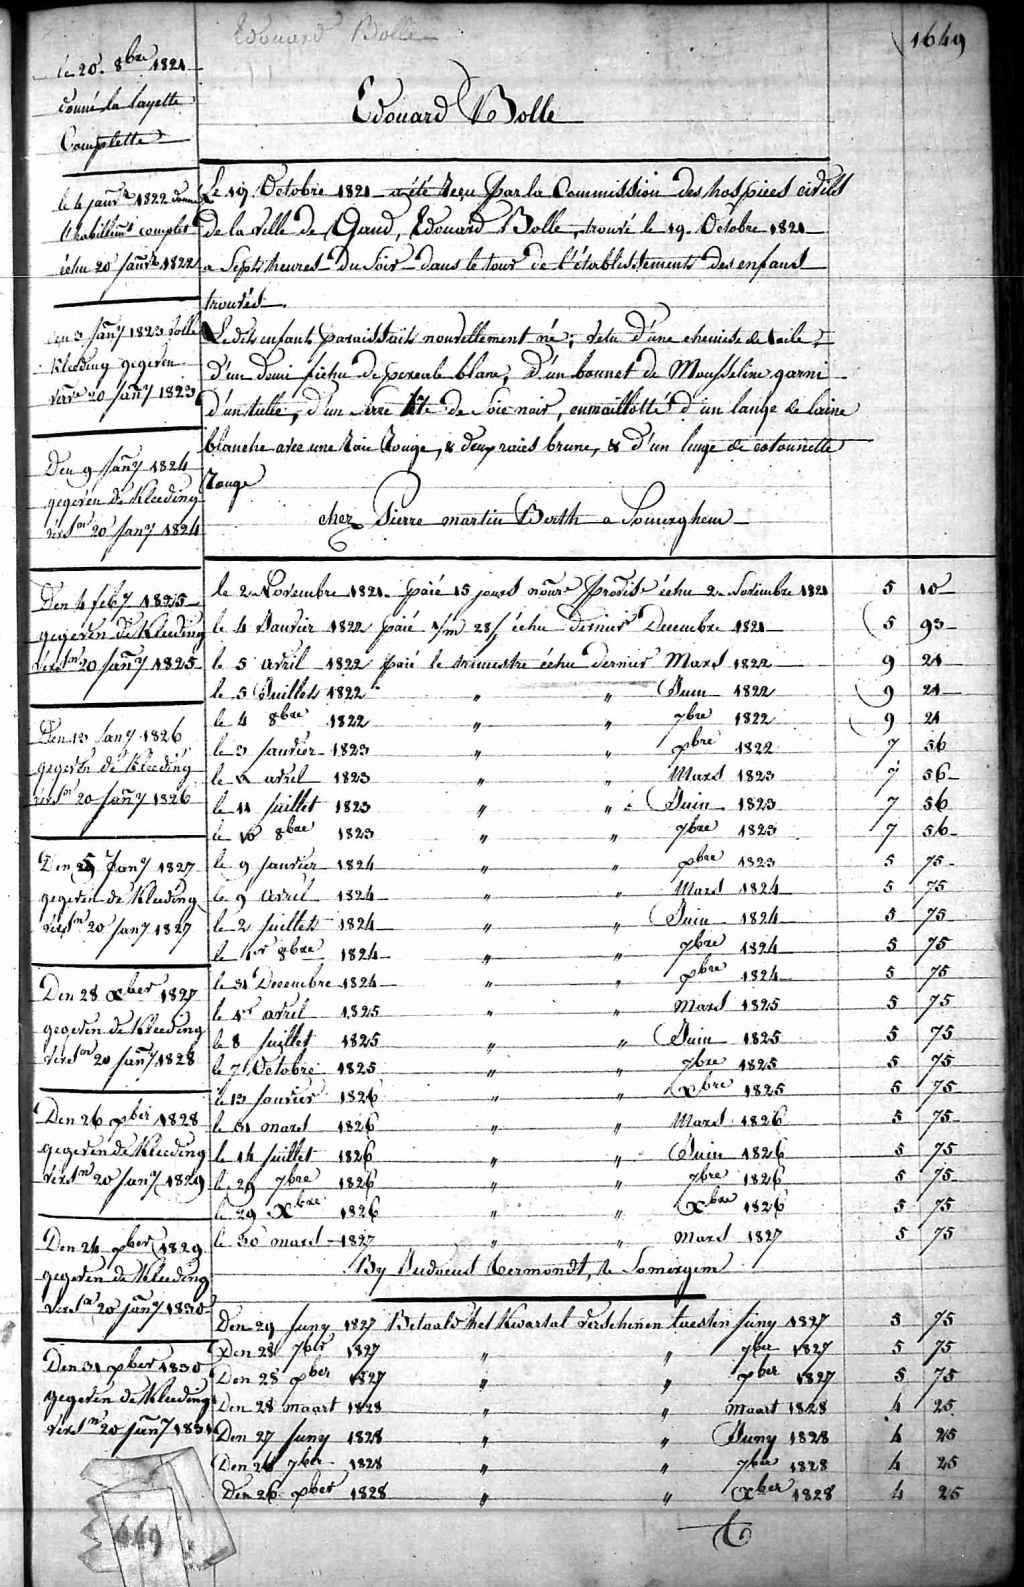 Edouard Bolle
1649
le 20. 8bre 1821
donné la layette
Complette
Edouard Bolle
le 4 janvr 1822 donné
l'habillemt complet
échu 20 janvr 1822
den 3 Jany 1823 volle
Kleeding gegeven
20 Jany 1823
Den 9 Jany 1824
gegeven de Kleeding
versn 20 Jany 1824
Den 4 feby 1825
gegeven de Kleeding
versn 20 Jany 1825
Den 13 Jany 1826
gegeven de Kleeding
versn 20 Jany 1826
Den 25 Jany 1827
gegeven de Kleeding
versn 20 Jany 1827
Den 28 xber 1827
gegeven de Kleeding
versn 20 Jany 1828
Den 26 xber 1828
gegeven de Kleeding
versn 20 Jany 1829
Den 24 xber 1829
gegeven de Kleeding
versn 20 Jany 1830
Den 31 xber 1830
gegeven de Kleeding
versn 20 Jany 1831
Le 19. Octobre 1821 a été reçu par la Commission des hospices civils
de la ville de Gand, Edouard Bolle, trouvé le 19. Octobre 1821
a Sept heures du Soir dans le tour de l'établissement des enfans
trouvés.
Ledit enfant paraissait nouvellement né; vetu d'une chemise de toile,
d'un demi fichu de percale blanc, d'un bonnet de Mousseline garni
d'un tulle, d'un serre tête de Soie noir, enmaillotté d'un lange de laine
blanche avec une raie rouge, & deux raies brune, & d'un linge de cotonnette
rouge
chez Pierre martin Berth a Somerghem
le 2 Novembre 1821. payé 15 jours échu 2 Novembre 1821 5 10
le 4 Janvier 1822 payé 28/ échu dernier Decembre 1821 5 93
le 5 avril 1822 payé le trimestre échu dernier Mars 1822 9 21
le 5 Juillet 1822 " " Juin 1822 9 21
le 4 8bre 1822 " " 7bre 1822 9 21
le 3 janvier 1823 " " xbre 1822 7 56
le 4 avril 1823 " " Mars 1823 7 56
le 11 juillet 1823 " " Juin 1823 7 56
le 10 8bre 1823 " " 7bre 1823 7 56
le 9 janvier 1824 " " xbre 1823 5 75
le 9 avril 1824 " " Mars 1824 5 75
le 2 juillet 1824 " " Juin 1824 5 75
le 1er 8bre 1824 " " 7bre 1824 5 75
le 31 Decembre 1824 " " xbre 1824 5 75
le 1r avril 1825 " " Mars 1825 5 75
le 8 juillet 1825 " " Juin 1825 5 75
le 7 Octobre 1825 " " 7bre 1825 5 75
le 13 janvier 1826 " " xbre 1825 5 75
le 31 mars 1826 " " Mars 1826 5 75
le 14 juillet 1826 " " Juin 1826 5 75
le 29 7bre 1826 " " 7bre 1826 5 75
le 29 Xbre 1826 " " Xbre 1826 5 75
le 30 mars 1827 " " Mars 1827 5 75
By Ludovius Vermondt, te Somergem
Den 29 Juny 1827 Betaald het Kwartal verschenen Juny 1827 5 75
Den 28 7ber 1827 " " 7ber 1827 5 75
Den 28 xber 1827 " " xber 1827 5 75
Den 28 maart 1828 " " Maart 1828 4 25
Den 27 Juny 1828 " " Juny 1828 4 25
Den 26 7ber 1828 " " 7ber 1828 4 25
Den 26 xber 1828 " " xber 1828 4 25
649